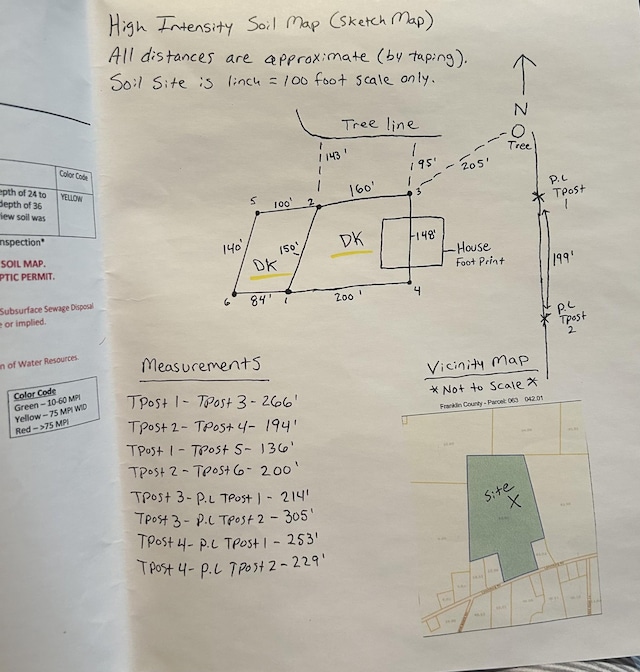 High Intensity Soil Map (Sketch Map)
All distances are approximate (by taping).
Soil Site is 1inch = 100 foot scale only.
N
Tree line
Tree
143'
95'
205'
P.L
TPost
1
199'
P.L
TPost
2
5
100'
2
160'
3
140'
150'
DK
DK
148'
House
Foot Print
6
84'
1
200'
4
Measurements
TPost 1 - TPost 3 - 266'
TPost 2 - TPost 4 - 194'
TPost 1 - TPost 5 - 136'
TPost 2 - TPost 6 - 200'
TPost 3 - P.L TPost 1 - 214'
TPost 3 - P.L TPost 2 - 305'
TPost 4 - P.L TPost 1 - 253'
TPost 4 - P.L TPost 2 - 229'
Vicinity Map
* Not to Scale *
Franklin County - Parcel: 063 042.01
Site
X
Color Code
epth of 24 to
YELLOW
depth of 36
iew soil was
nspection*
SOIL MAP.
PTIC PERMIT.
Subsurface Sewage Disposal
e or implied.
n of Water Resources.
Color Code
Green – 10-60 MPI
Yellow – 75 MPI WID
Red – >75 MPI